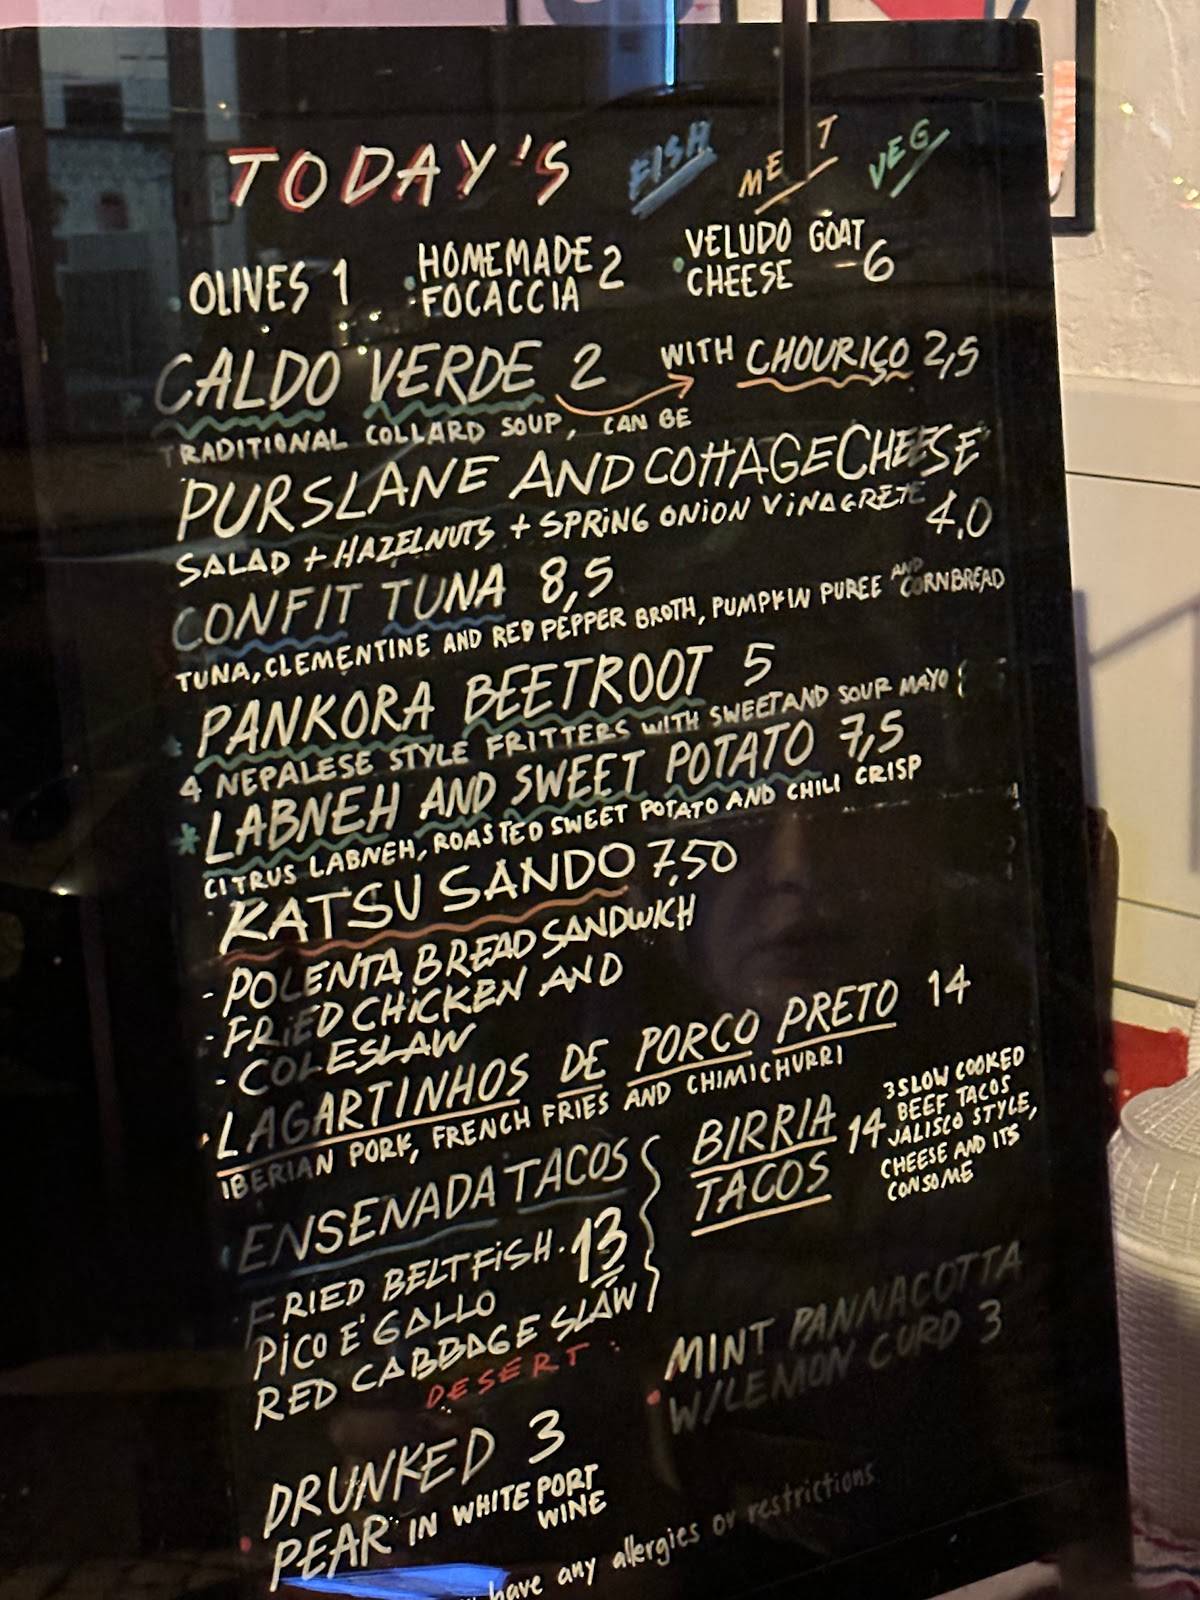 TODAY'S FISH MEAT VEG
OLIVES 1
HOMEMADE 2
FOCACCIA
VELUDO GOAT
CHEESE 6
CALDO VERDE 2 WITH CHOURIÇO 2,5
TRADITIONAL COLLARD SOUP, CAN BE
PURSLANE AND COTTAGE CHEESE
SALAD + HAZELNUTS + SPRING ONION VINAGRETE 4.0
CONFIT TUNA 8,5
TUNA, CLEMENTINE AND RED PEPPER BROTH, PUMPKIN PUREE AND CORNBREAD
PANKORA BEETROOT 5
4 NEPALESE STYLE FRITTERS WITH SWEET AND SOUR MAYO
* LABNEH AND SWEET POTATO 7,5
CITRUS LABNEH, ROASTED SWEET POTATO AND CHILI CRISP
KATSU SANDO 7,50
- POLENTA BREAD SANDWICH
- FRIED CHICKEN AND
- COLESLAW
LAGARTINHOS DE PORCO PRETO 14
IBERIAN PORK, FRENCH FRIES AND CHIMICHURRI
ENSENADA TACOS
FRIED BELTFISH. 13
PICO E GALLO
RED CABBAGE SLAW
BIRRIA 14
TACOS
3 SLOW COOKED
BEEF TACOS
JALISCO STYLE,
CHEESE AND ITS
CONSOME
DESERT:
DRUNKED 3
PEAR IN WHITE PORT
WINE
MINT PANNACOTTA
W/LEMON CURD 3
have any allergies or restrictions